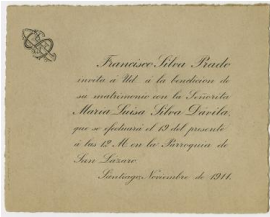 Francisco Silva Prado
invita á Ud. á la bendicion de
su matrimonio con la Señorita
Maria Luisa Silva Dávila,
que se efectuará el 19 del presente
á las 12 M. en la Parroquia de
San Lázaro
Santiago, Noviembre de 1911.